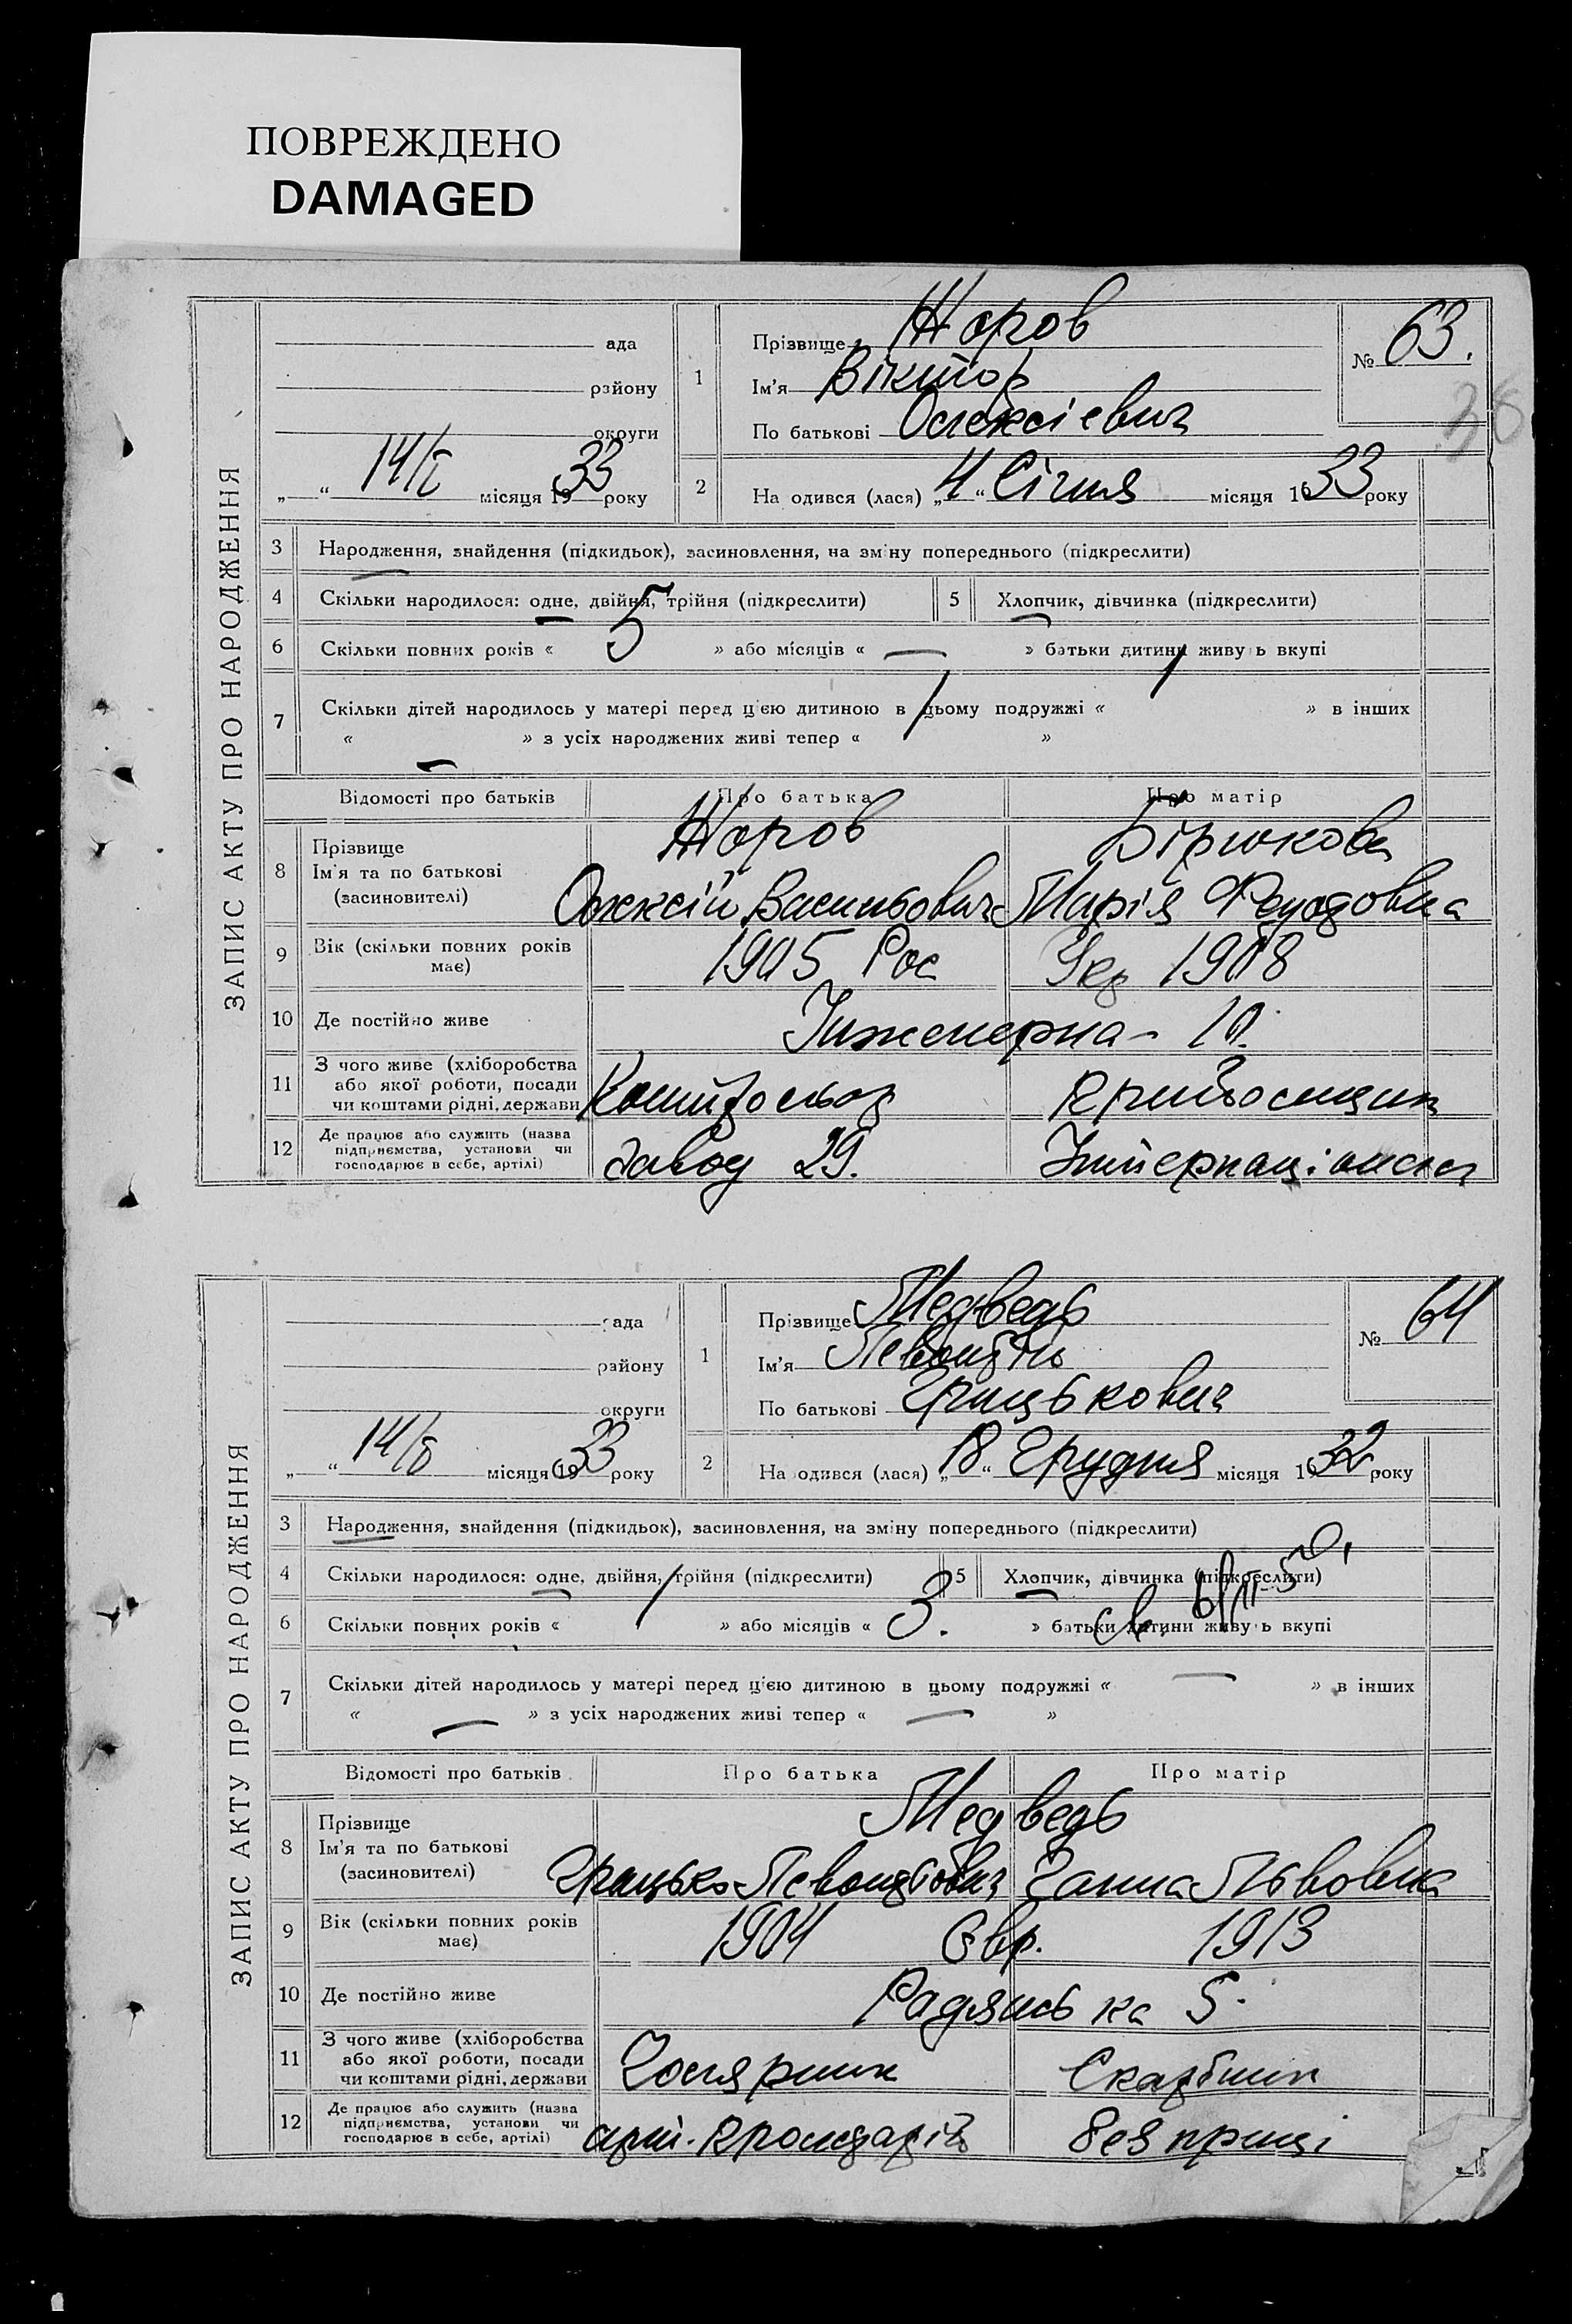 ПОВРЕЖДЕНО
DAMAGED
ЗАПИС АКТУ ПРО НАРОДЖЕННЯ
ада
району
округи
„ “ 14/I місяця 1933 року
1
Прізвище Жоров
Ім'я Віктор
По батькові Олексієвич
№ 63.
38
2
На одився (лася) „4“ Січня місяця 1933 року
3 Народження, знайдення (підкидьок), засиновлення, на зміну попереднього (підкреслити)
4 Скільки народилося: одне, двійня, трійня (підкреслити) 5 Хлопчик, дівчинка (підкреслити)
6 Скільки повних років « 5 » або місяців « — » батьки дитини живуть вкупі
7 Скільки дітей народилось у матері перед цією дитиною в цьому подружжі « » в інших
« » з усіх народжених живі тепер « »
Відомості про батьків Про батька Про матір
8 Прізвище
Ім'я та по батькові
(засновителі)
Жоров Бірюкова
Олексій Васильович Марія
9 Вік (скільки повних років має)
1905 Рос Укр 1908
10 Де постійно живе Інженерна - 10.
11 З чого живе (хліборобства
або якої роботи, посади
чи коштами рідні, держави
12 Де працює або служить (назва
підприємства, установи чи
господарює в себе, артілі)
завод 29.
ЗАПИС АКТУ ПРО НАРОДЖЕННЯ
рада
району
округи
„ “ 14/I місяця 1933 року
1
Прізвище Медведь
Ім'я
По батькові Грицькович
№ 64
2
На одився (лася) „18“ Грудня місяця 1932 року
3 Народження, знайдення (підкидьок), засиновлення, на зміну попереднього (підкреслити)
4 Скільки народилося: одне, двійня, трійня (підкреслити) 5 Хлопчик, дівчинка (підкреслити)
6 Скільки повних років « » або місяців « 3. » батьки дитини живуть вкупі
7 Скільки дітей народилось у матері перед цією дитиною в цьому подружжі « — » в інших
« — » з усіх народжених живі тепер « — »
Відомості про батьків Про батька Про матір
8 Прізвище
Ім'я та по батькові
(засиновителі)
Медведь
Грицько Ганна Львовна
9 Вік (скільки повних років має)
1904 Євр. 1913
10 Де постійно живе Радянська 5.
11 З чого живе (хліборобства
або якої роботи, посади
чи коштами рідні, держави
12 Де працює або служить (назва
підприємства, установи чи
господарює в себе, артілі)
Без праці